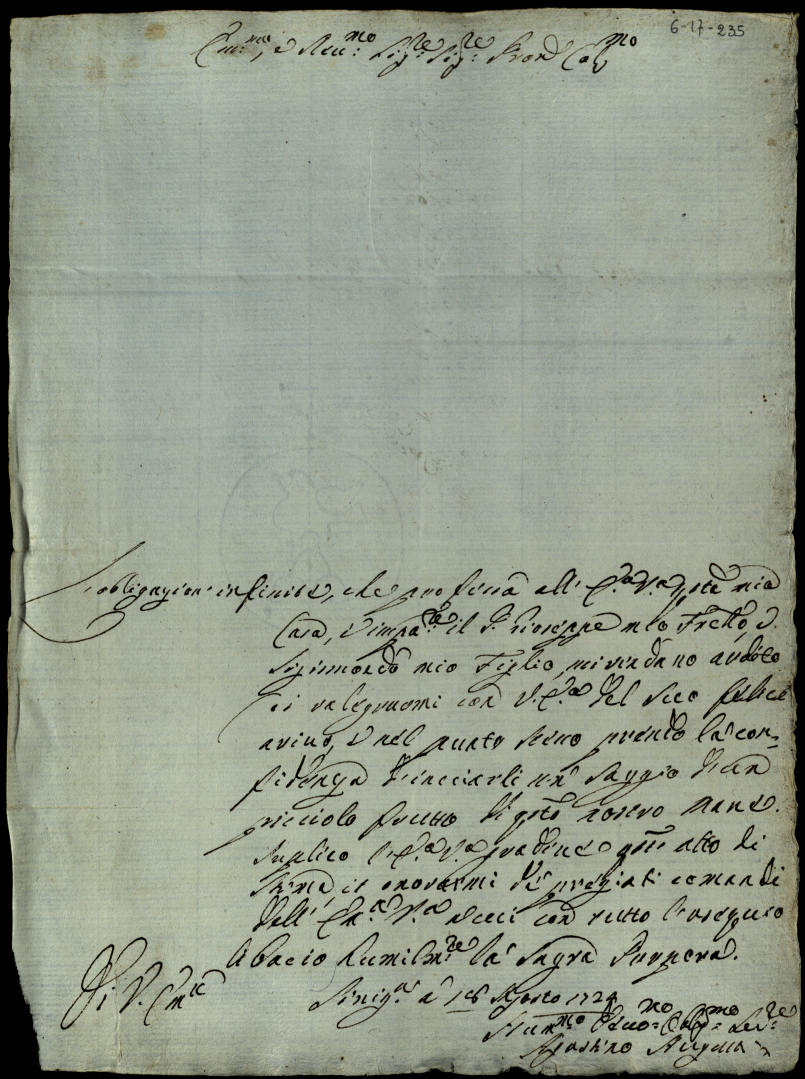 6-17-235
Em:mo, e Reu:mo Sig:re Sig:re Pron Col:mo
L'obligazioni infinite, che professa all' E.a V.a qsta mia
Casa, e il S. Gioseppe mio Fretto, e
Sigismondo mio Figlio, mi rendano ardito
di rasegnarmi con V.E.a del suo felice
arivo, e nel punto stesso prendo la con-
fidenza d'inviarli un saggio d'un
picciolo frutto di qsto nostro Mare.
Suplico l'E.a V.a gradire qsto atto di
stima, et onorarmi de pregiati comandi
dell' Em.a V.a a cui con tutto l'ossequio
bacio humilm:te la Sagra Purpora.
Di V. Em.za
Sinig.a a 18 Agosto 1724
Hum:mo Deuo:mo Oblig:mo Ser:re
Agostino